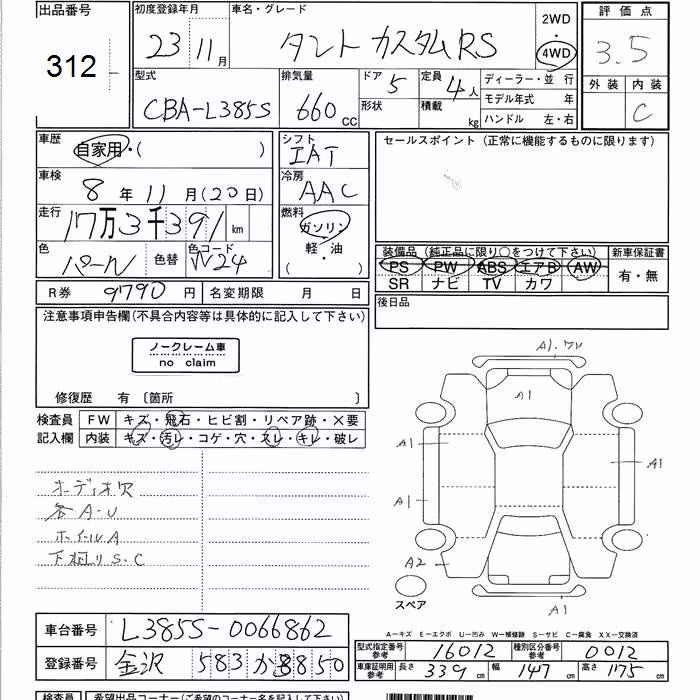 出品番号 312
初度登録年月 23 11月
車名・グレード タント カスタムRS
2WD
4WD
評価点 3.5
外装 内装 C
型式 CBA-L385S
排気量 660cc
ドア 5
形状
定員 4人
積載 kg
ディーラー・並行
モデル年式 年
ハンドル 左・右
車歴 自家用・( )
車検 8年11月(20日)
走行 17万3千391km
色 パール 色替 色コード W24
シフト IAT
冷房 AAC
燃料 ガソリン
軽・油
( )
セールスポイント(正常に機能するものに限ります)
装備品(純正品に限り○をつけて下さい)
PS PW ABS エアB AW
SR ナビ TV カワ
新車保証書
有・無
後日品
R券 9790円 名変期限 月 日
注意事項申告欄(不具合内容等は具体的に記入して下さい)
ノークレーム車
no claim
修復歴 有 〔箇所 〕
検査員 FW キズ・飛石・ヒビ割・リペア跡・×要
記入欄 内装 キズ・汚レ・コゲ・穴・スレ・キレ・破レ
オーディオ穴
各A-U
ホイールA
下廻りS.C
A1.フレ
A1
A1
A1
A1
A2
A1
スペア
A―キズ E―エクボ U―凹み W―補修跡 S―サビ C―腐食 XX―交換済
車台番号 L385S-0066862
登録番号 金沢 583 か 3850
型式指定番号 参考 16012 種別区分番号 参考 0012
車庫証明用 参考 長さ 339cm 幅 147cm 高さ 175cm
検査員 希望出品コーナー(ご希望のコーナー名を記入して下さい)